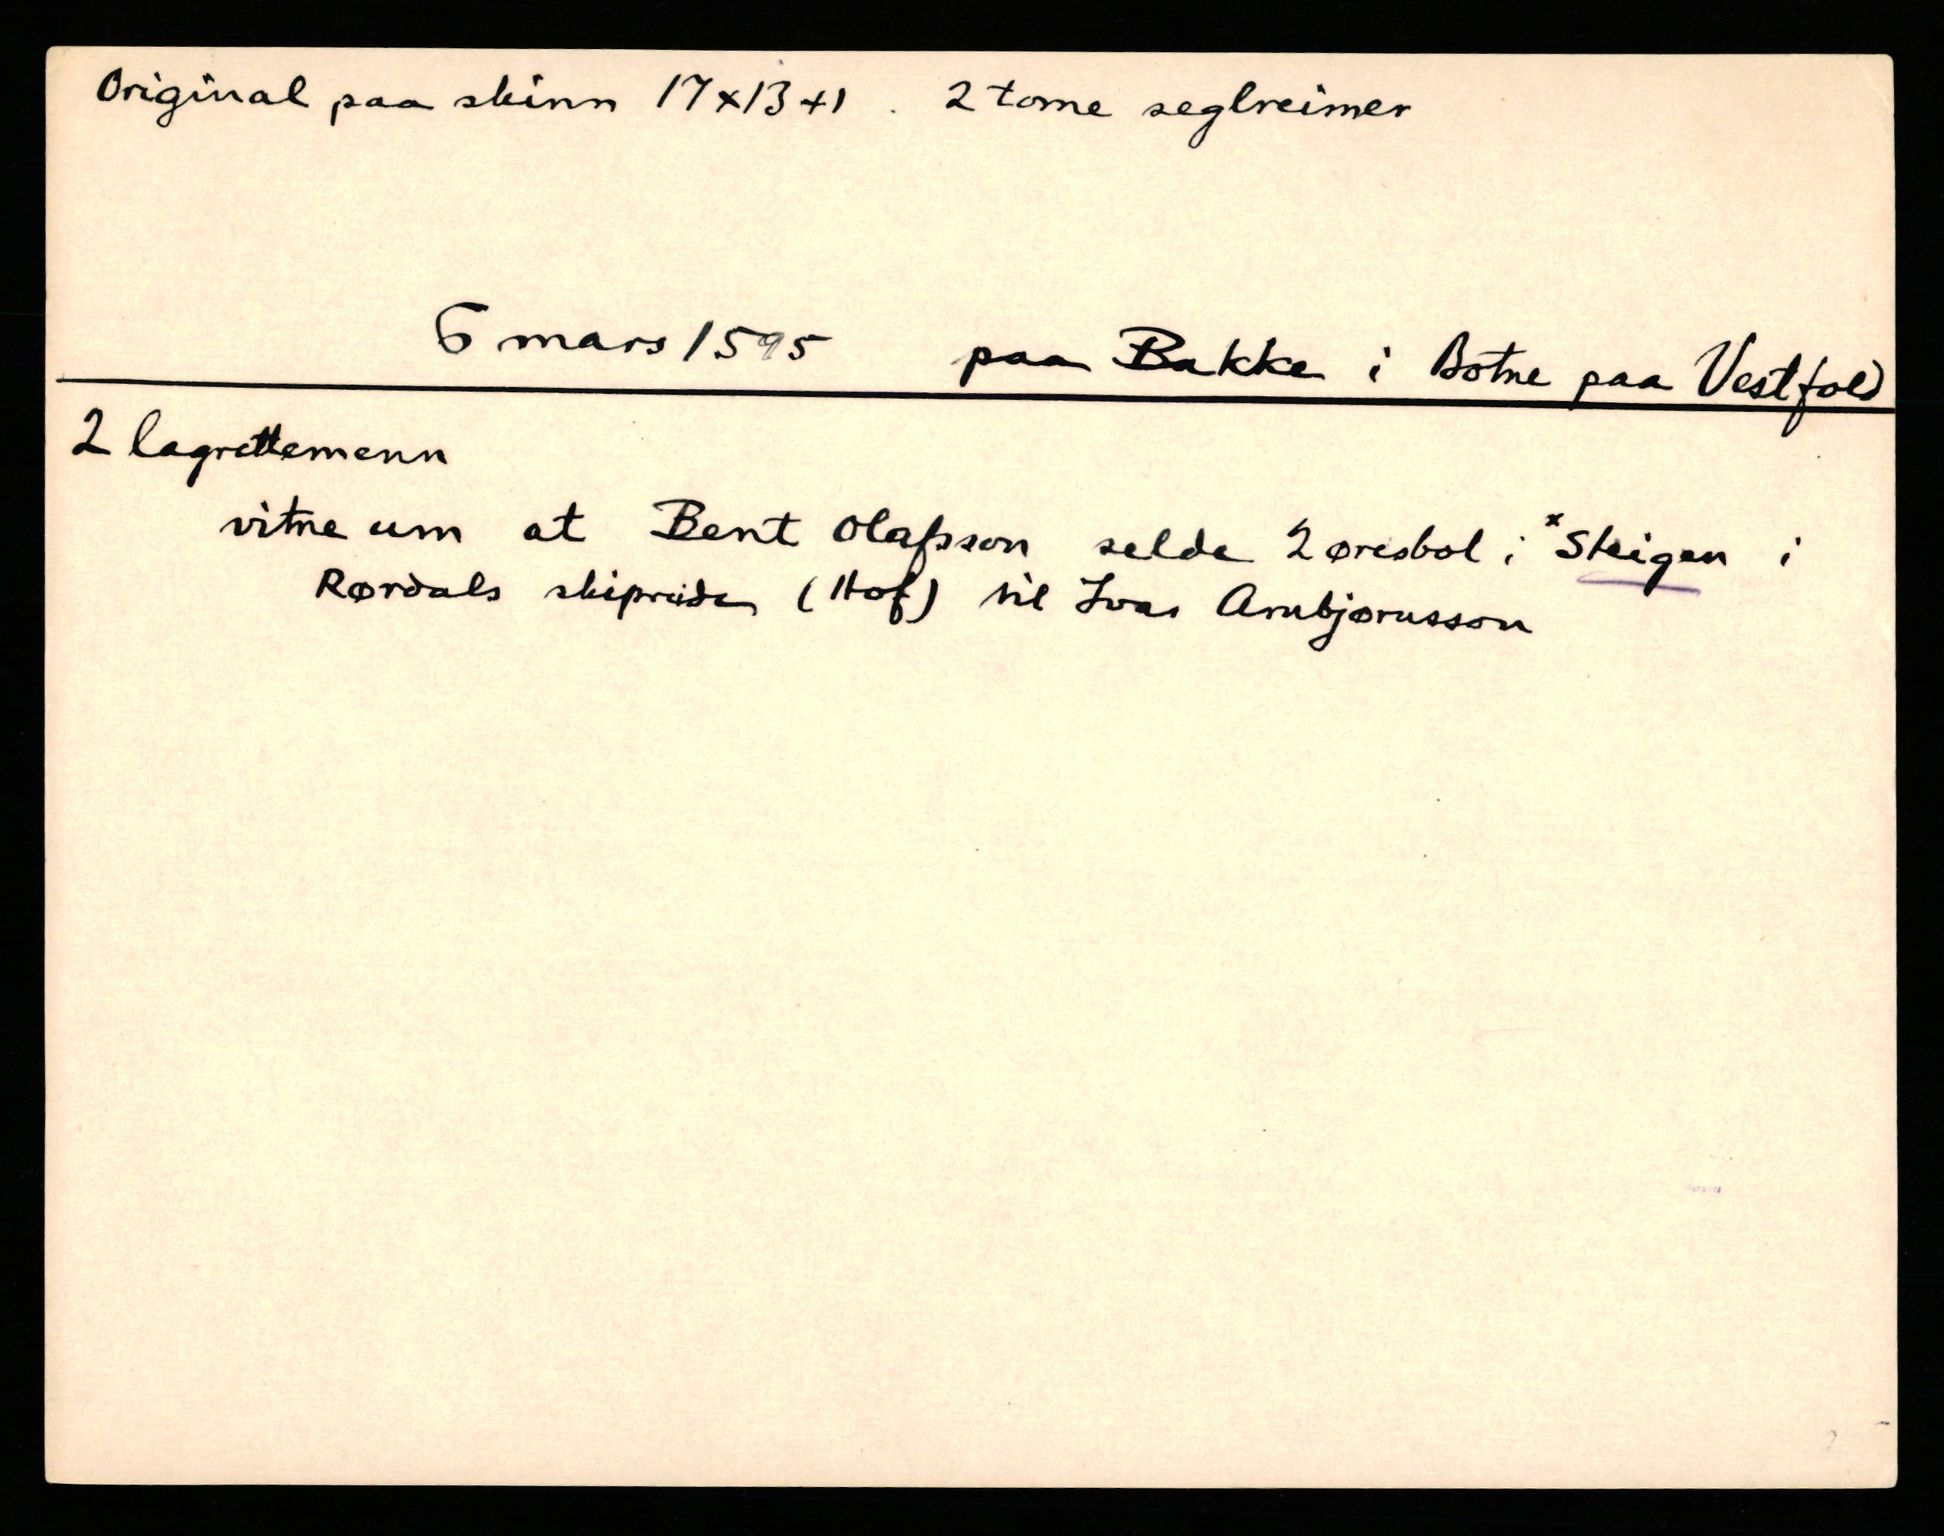 Original paa skinn 17x13+1. 2 tome seglreimer
6 mars 1595 paa Bakke i Botne paa Vestfold
2 lagrettemenn
vitne um at Bent Olafsson selde 2 øresbol i *Skeigen i
Rørdals skipreida (Hof) til Ivar Arnbjørnsson